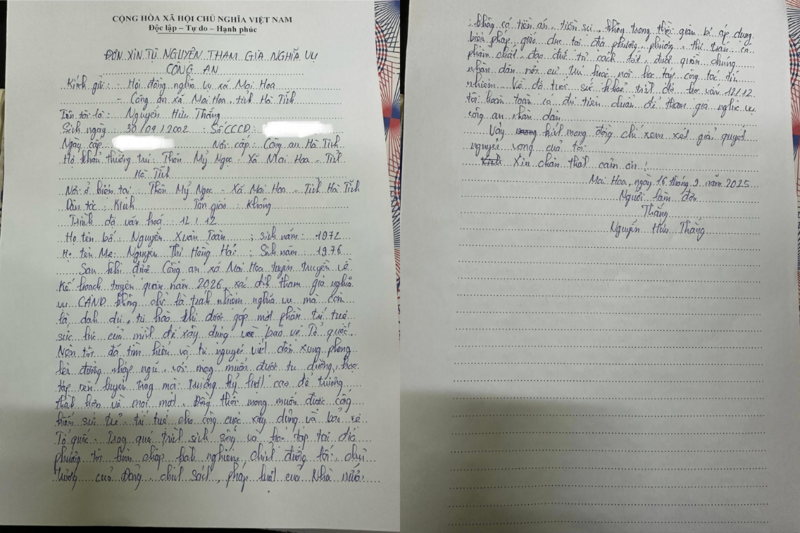 CỘNG HÒA XÃ HỘI CHỦ NGHĨA VIỆT NAM
Độc lập – Tự do – Hạnh phúc
ĐƠN XIN TỰ NGUYỆN THAM GIA NGHĨA VỤ
CÔNG AN
Kính gửi: - Hội đồng nghĩa vụ xã Mai Hoa
- Công an xã Mai Hoa, tỉnh Hà Tĩnh
Tên tôi là: Nguyễn Hữu Thắng
Sinh ngày: 30/09/2002 Số CCCD:
Ngày cấp Nơi cấp: Công an Hà Tĩnh
Hộ khẩu thường trú: Thôn Mỹ Ngọc - Xã Mai Hoa - Tỉnh
Hà Tĩnh
Nơi ở hiện tại: Thôn Mỹ Ngọc - Xã Mai Hoa - Tỉnh Hà Tĩnh
Dân tộc: Kinh Tôn giáo: Không
Trình độ văn hoá: 12/12
Họ tên bố: Nguyễn Xuân Toàn ; Sinh năm: 1972
Họ tên Mẹ: Nguyễn Thị Hồng Hải ; Sinh năm 1976
Sau khi được Công an xã Mai Hoa tuyên truyền về
kế hoạch tuyển quân năm 2026, xác định tham gia nghĩa
vụ CAND không chỉ là trách nhiệm nghĩa vụ mà còn
là danh dự, tự hào khi được góp một phần trí tuệ
sức lực của mình để xây dựng và bảo vệ Tổ quốc.
Nên tôi đã tìm hiểu và tự nguyện viết đơn xung phong
lên đường nhập ngũ, với mong muốn được tu dưỡng, học
tập rèn luyện trong môi trường kỷ luật cao để trưởng
thành hơn về mọi mặt. Đồng thời mong muốn được cống
hiến sức trẻ, trí tuệ cho công cuộc xây dựng và bảo vệ
Tổ quốc. Trong quá trình sinh sống và học tập tại địa
phương tôi luôn chấp hành nghiêm chỉnh đường lối, chủ
trương của Đảng, chính sách, pháp luật của Nhà nước
không có tiền án, tiền sự, không trong thời gian bị áp dụng
biện pháp giáo dục tại địa phương, phường, thị trấn có
phẩm chất, đạo đức tư cách tốt, được quần chúng
nhân dân nơi cư trú hoặc nơi học tập công tác tín
nhiệm. Về độ tuổi sức khoẻ trình độ học vấn 12/12
tôi hoàn toàn có đủ tiêu chuẩn đi tham gia nghĩa vụ
công an nhân dân.
Vậy kính mong đồng chí xem xét giải quyết
nguyện vọng của tôi
Xin chân thành cảm ơn!
Mai Hoa, ngày 16 tháng 9 năm 2025
Người làm đơn
Thắng
Nguyễn Hữu Thắng